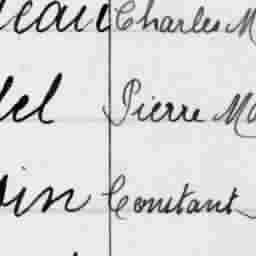 eau Charles M
del Pierre Ma
in Constant